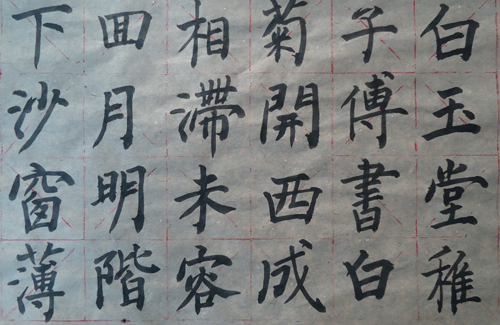 白玉堂稚
子傅書白
菊開西成
相滯未容
囬月明階
下沙窗薄